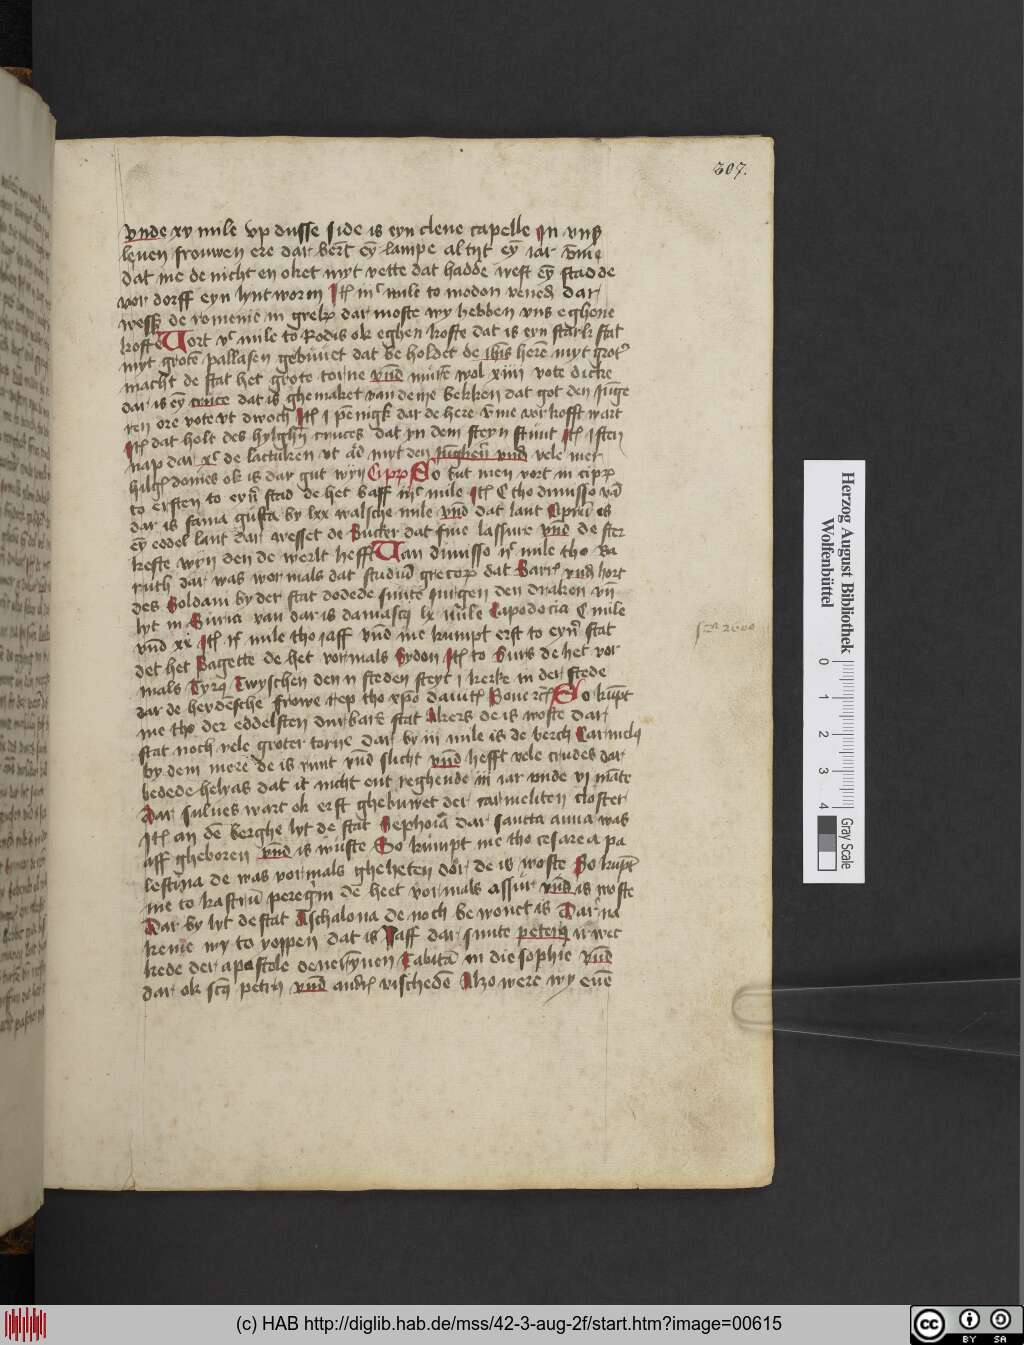 307.
vnde xv mile vp dusse side is eyn clene capelle In vns
leuen frouwen ere dar bert eȳ lampe altijt eȳ iar vm̄e
dat me de nicht en oket myt vette dat hadde west eȳ stadde
vor dorff eyn lyntworm Itē mile to modon vened dar
de romenie in dar moste wy hebben vns eghene
koste Vort vc mile to Rodis ok eghen koste dat is eyn starke stat
myt grotē pallasen gebuwet dat be holdet de ihūs herē myt grotē
macht de stat het grote torne vnd murē wol xiiii vote dicke
dar is eȳ cruce dat is ghemaket van deme bekken dat got den iūge
ren ore vote vt dwoch Itē i pēnigk dar de here vm̄e vorkofft wart
Itē dat holt des hylghē cruces dat in dem steyn stunt Itē
nap dar xc de lactuken vt ād myt den iūgherē vnd vele mer
domes ok is dar gut wyn So tut men vort in
to ersten to eynē stad de het baff mile Itē C tho dimisso vā
dar is sama gusta by lxx walsche mile vnd dat lant Cipri is
eȳ eddel lant dar wesset de Sucker dat fine lassure vnd de ster
keste wyn den de werlt hefft Van dimisso mile tho ba
ruth dar was wormals dat studiū dat vnd hort
des Soldani by der stat dodede sunte iurgen den draken vn̄
lyt in Siria van dar is damascꝫ lx mile Capodocia C mile
vnd xx Itē mile tho iaff vnd me kumpt erst to eynē stat
det het Sagette de het vormals Sydon Itē to Surs de het vor
mals Tyrꝫ Twyschen den ii steden steyt i kerke in der stede
dar de heydēsche frowe rep tho xpō So kūpt
me tho der eddelsten stat Akers de is woste dar
stat noch vele groter torne dar by iii mile is de berch Carmelꝫ
by dem mere de is runt vnd slicht vnd hefft vele crudes dar
bedede helyas dat it nicht ent reghende iii iar vnde vi māte
Dar sulues wart ok erst ghebuwet der carmeliten closter
Itē an dē berghe lyt de stat dar sancta anna was
aff gheboren vnd is wuste So kumpt me tho cesarea pa
lestina de was vormals gheheten dor de is woste So kūpt
me to kastrū peregin dē heet vormals assur vnd is woste
Dar by lyt de stat Aschalona de noch be wonet is Dar na
keme wy to yoppen dat is Jaff dar sunte peterꝫ
kede der apostole Tabitā vnd
dar ok scꝫ petrꝫ vnd andrē vischedē Alzo were wy euē
Herzog August Bibliothek
Wolfenbüttel
0 1 2 3 4
Gray Scale
(c) HAB http://diglib.hab.de/mss/42-3-aug-2f/start.htm?image=00615
cc BY SA